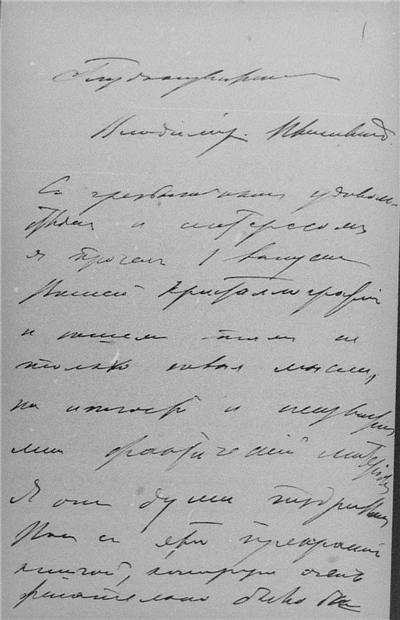 1
Глубокоуважаемый
Владимір Ивановичъ
Съ чрезвычайнымъ удоволь-
ствіем и интересомъ
я прочел 1 выпуск
Вашей Кристаллографіи
и нашел там не
только новыя мысли,
но и много и
мнѣ фактическій матеріал
Я от души
Вас с этой прекрасной
книгой, которую очень
желательно было бы